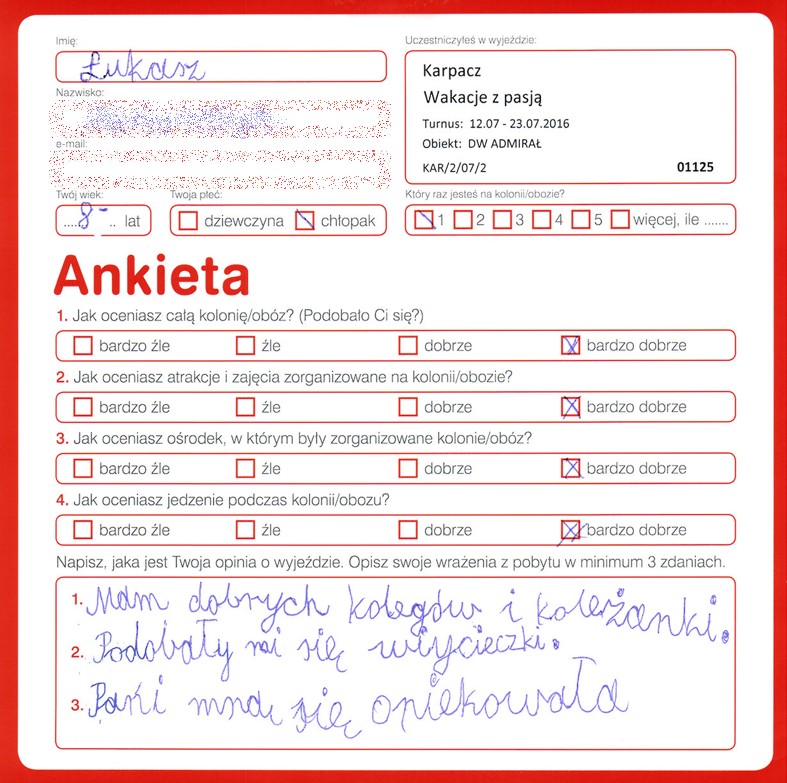 Imię:
Łukasz
Nazwisko:
e-mail:
Twój wiek:
8 lat
Twoja płeć:
dziewczyna chłopak
Uczestniczyłeś w wyjeździe:
Karpacz
Wakacje z pasją
Turnus: 12.07 - 23.07.2016
Obiekt: DW ADMIRAŁ
KAR/2/07/2 01125
Który raz jesteś na kolonii/obozie?
1 2 3 4 5 więcej, ile .......
Ankieta
1. Jak oceniasz całą kolonię/obóz? (Podobało Ci się?)
bardzo źle źle dobrze bardzo dobrze
2. Jak oceniasz atrakcje i zajęcia zorganizowane na kolonii/obozie?
bardzo źle źle dobrze bardzo dobrze
3. Jak oceniasz ośrodek, w którym były zorganizowane kolonie/obóz?
bardzo źle źle dobrze bardzo dobrze
4. Jak oceniasz jedzenie podczas kolonii/obozu?
bardzo źle źle dobrze bardzo dobrze
Napisz, jaka jest Twoja opinia o wyjeździe. Opisz swoje wrażenia z pobytu w minimum 3 zdaniach.
1. Mam dobrych kolegów i koleżanki.
2. Podobały mi się wycieczki.
3. Pani mną się opiekowała